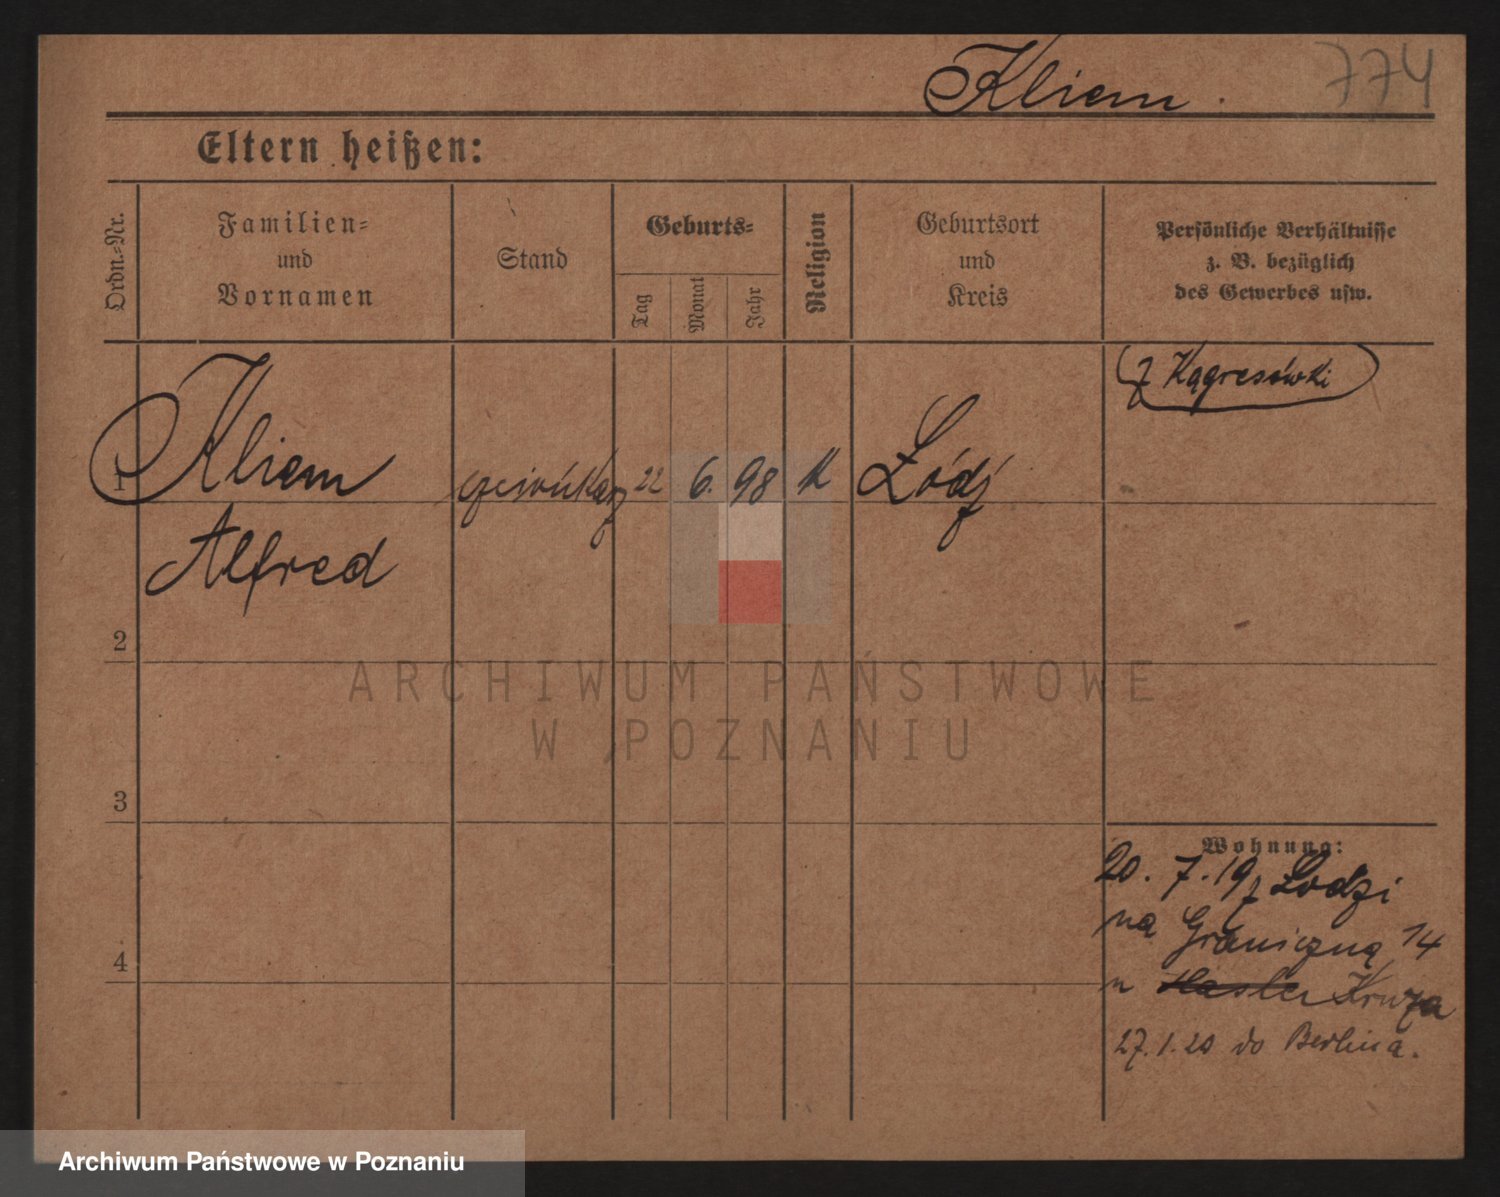 Kliem.
774
Eltern heißen:
Ordn.-Nr.
Familien-
und
Vornamen
Stand
Geburts-
Tag
Monat
Jahr
Religion
Geburtsort
und
Kreis
Persönliche Verhältnisse
z. B. bezüglich
des Gewerbes usw.
z Kągresówki
1
Kliem
22
6.
98
Łódź
Alfred
2
ARCHIWUM PAŃSTWOWE
W POZNANIU
3
Wohnung:
20. 7. 19 z Łodzi
na Graniczną 14
u Kruza
4
27.1.20 do Berlina.
Archiwum Państwowe w Poznaniu